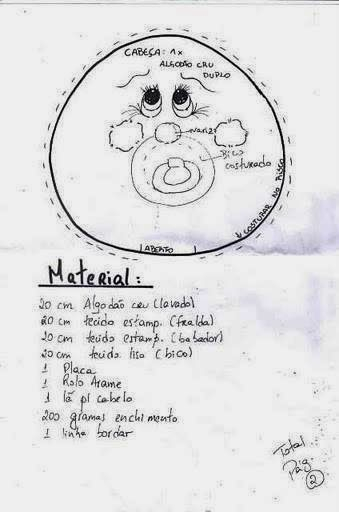 CABEÇA: 1x
ALGODÃO CRU
DUPLO
nariz
Bico
costurado
COSTURAR NO RISCO
ABERTO
Material:
20 cm Algodão cru (lavado)
20 cm tecido estamp. (fralda)
20 cm tecido estamp. (babador)
20 cm tecido liso (bico)
1 Placa
1 Rolo Arame
1 lã p/ cabelo
200 gramas enchimento
1 linha bordar
Total
Pág.
2